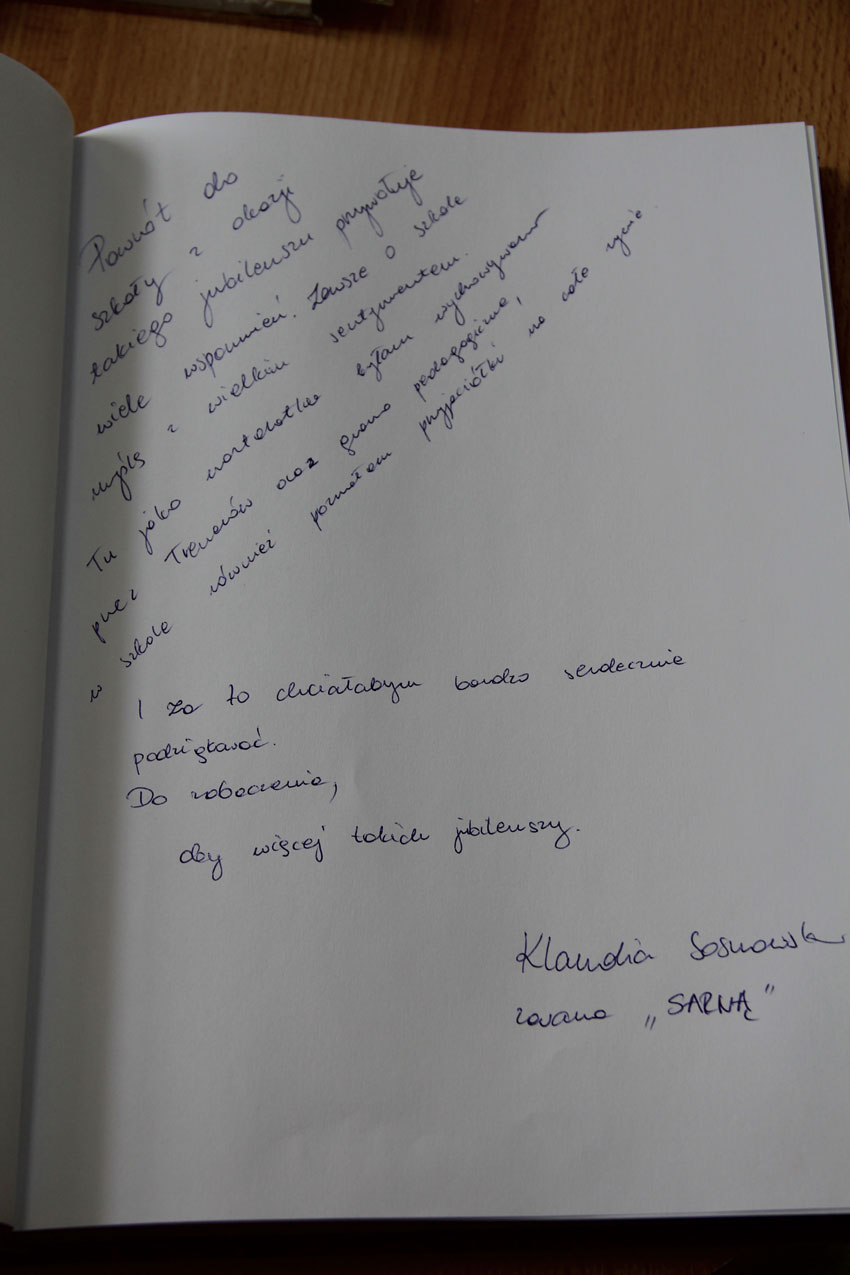 Powrót do
szkoły z okazji
takiego jubileuszu przywołuje
wiele wspomnień. Zawsze o szkole
myślę z wielkim sentymentem.
Tu jako nastolatka byłam wychowywana
przez Trenerów oraz grono pedagogiczne,
w szkole również poznałam przyjaciółki na całe życie.
I za to chciałabym bardzo serdecznie
podziękować.
Do zobaczenia,
oby więcej takich jubileuszy.
Klaudia Sosnowska
zwana „SARNĄ"